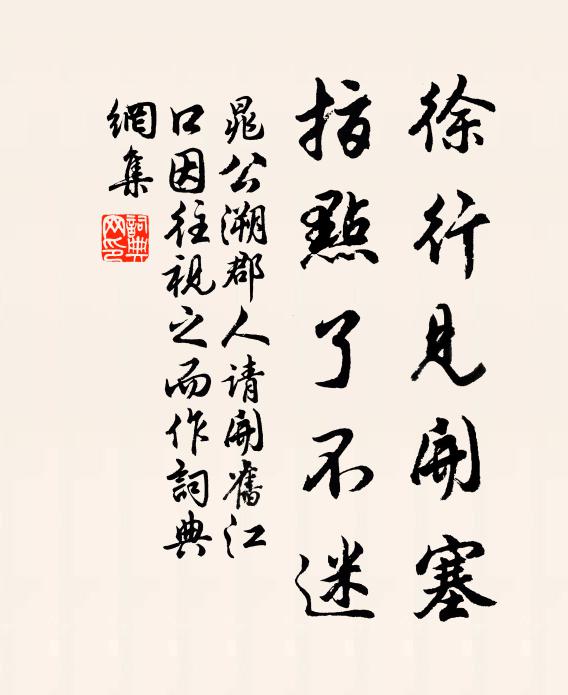 徐行見開塞
指點了不迷
晁公溯郡人请開舊江
口因往視之而作詞典
網集
詞典
网印